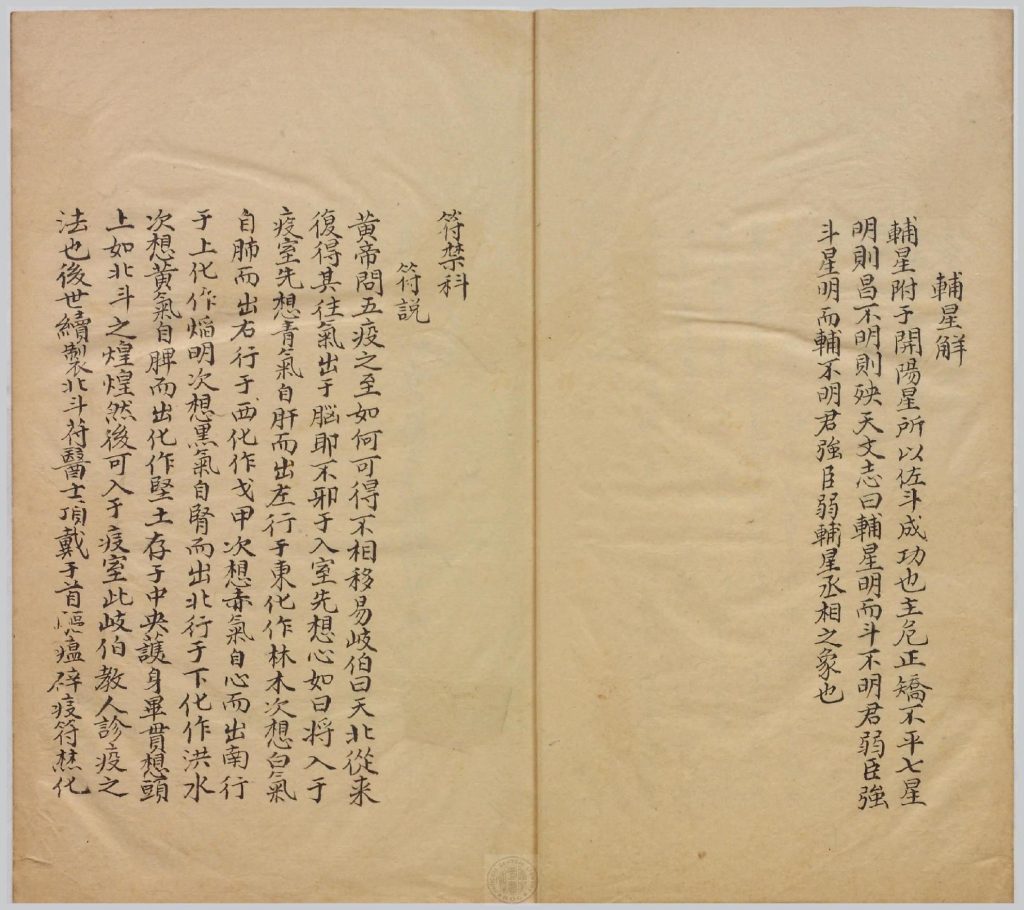 輔星解
輔星附于開陽星所以佐斗成功也主危正矯不平七星
明則昌不明則殃天文志曰輔星明而斗不明君弱臣強
斗星明而輔不明君強臣弱輔星丞相之象也
符禁科
符説
黄帝問五疫之至如何可得不相移易岐伯曰天北從来
復得其往氣出于脳耶不邪于入室先想心如日将入于
疫室先想青氣自肝而出左行于東化作林木次想白氣
自肺而出右行于西化作戈甲次想赤氣自心而出南行
于上化作焰明次想黒氣自腎而出北行于下化作洪水
次想黄氣自脾而出化作堅土存于中央護身畢貫想頭
上如北斗之煌煌然後可入于疫室此岐伯教人診疫之
法也後世續製北斗符醫士頂戴于首瘟疫符化